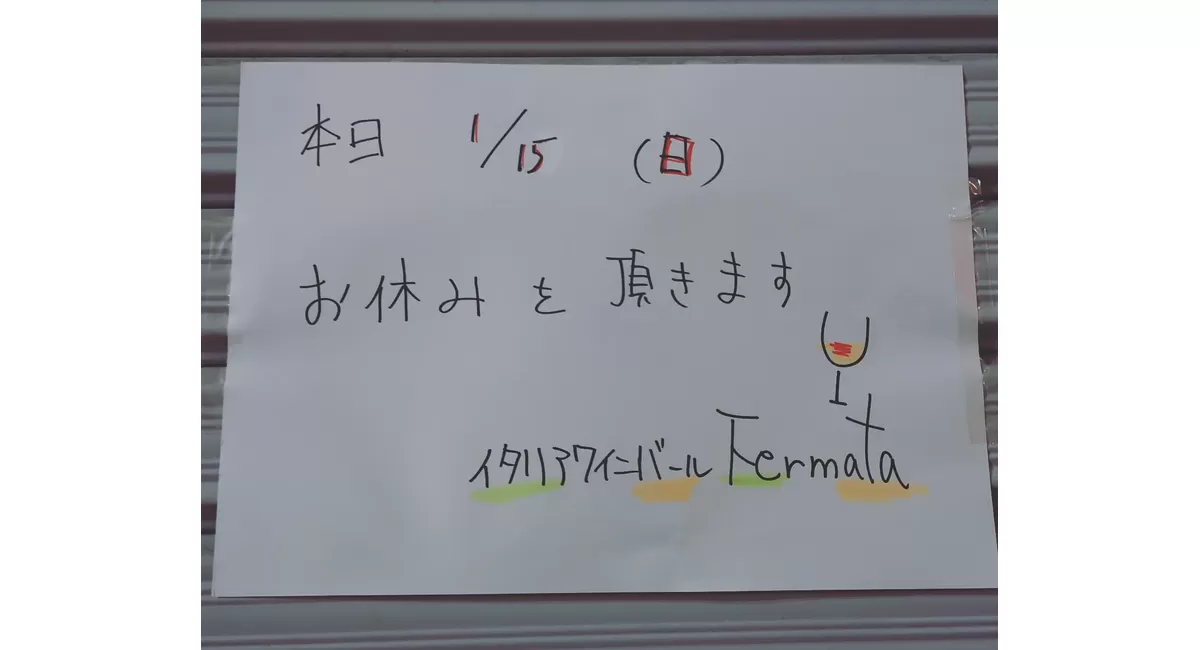 本日 1/15 (日)
お休みを頂きます
イタリアワインバール Fermata